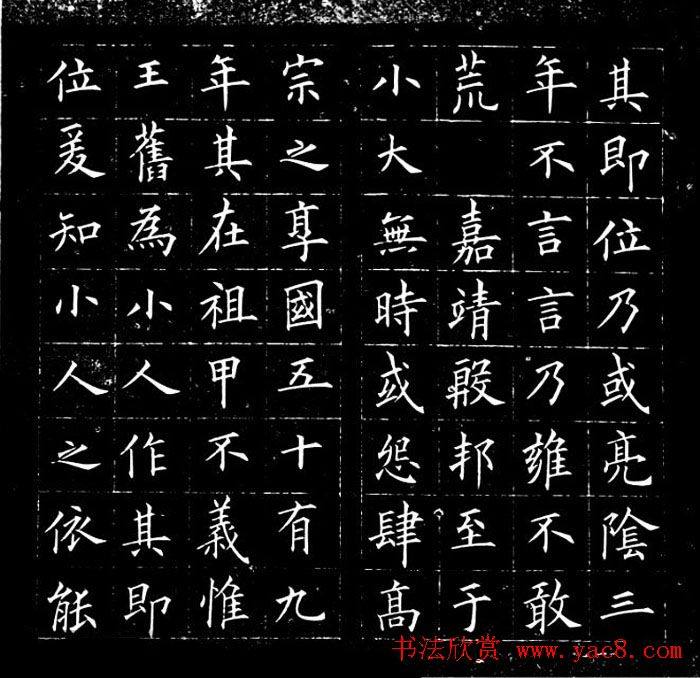 其即位乃或亮陰三
年不言言乃雍不敢
荒 嘉靖殷邦至于
小大無時或怨肆高
宗之享國五十有九
年其在祖甲不義惟
王舊為小人作其即
位爰知小人之依能
书法欣赏 www.yac8.com